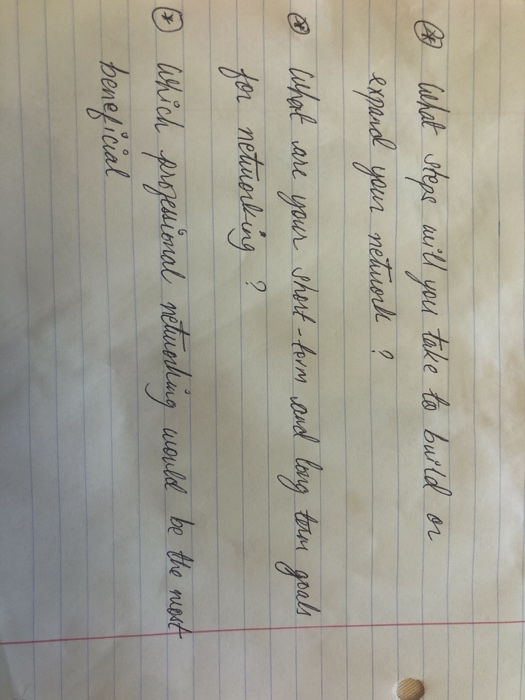 What steps will you take to build or
expand your network?
What are your short-term and long term goals
for networking?
Which professional networking would be the most
beneficial